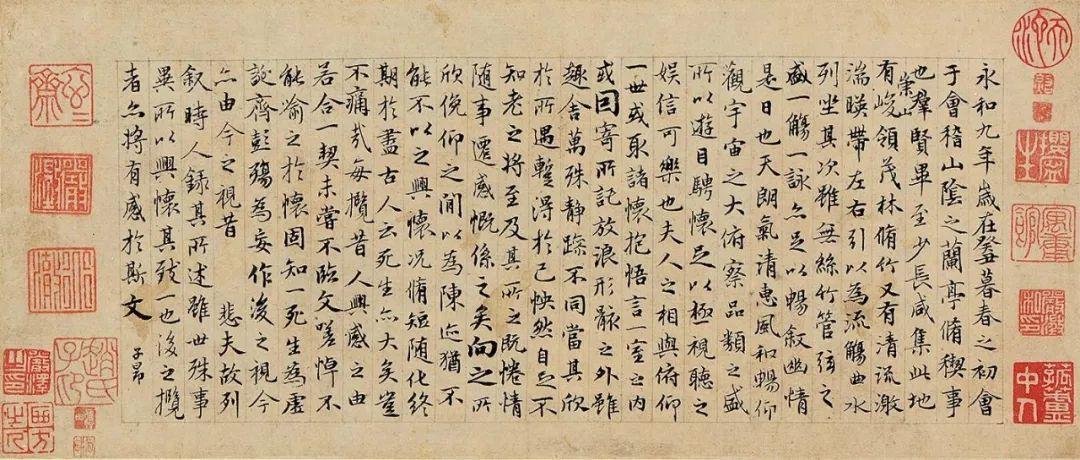 永和九年歲在癸丑暮春之初會
于會稽山陰之蘭亭脩稧事
也羣賢畢至少長咸集此地
有崇山峻領茂林脩竹又有清流激
湍暎帶左右引以為流觴曲水
列坐其次雖無絲竹管弦之
盛一觴一詠亦足以暢叙幽情
是日也天朗氣清惠風和暢仰
觀宇宙之大俯察品類之盛
所以遊目騁懷足以極視聽之
娛信可樂也夫人之相與俯仰
一世或取諸懷抱悟言一室之內
或因寄所託放浪形骸之外雖
趣舍萬殊静躁不同當其欣
於所遇蹔得於己怏然自足不
知老之將至及其所之既惓情
随事遷感慨係之矣向之所
欣俛仰之間以為陳迹猶不
能不以之興懷況脩短随化終
期於盡古人云死生亦大矣豈
不痛哉每攬昔人興感之由
若合一契未嘗不臨文嗟悼不
能喻之於懷固知一死生為虛
誕齊彭殤為妄作後之視今
亦由今之視昔 悲夫故列
叙時人錄其所述雖世殊事
異所以興懷其致一也後之攬
者亦將有感於斯文
子昂